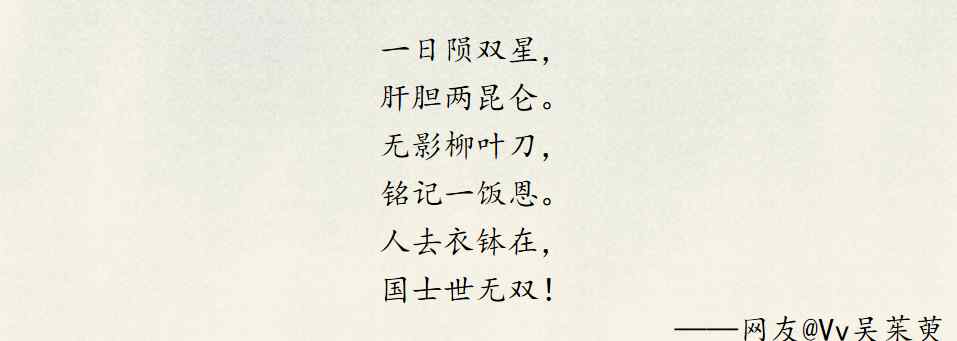 一日陨双星，
肝胆两昆仑。
无影柳叶刀，
铭记一饭恩。
人去衣钵在，
国士世无双！
——网友@Vv吴茱萸